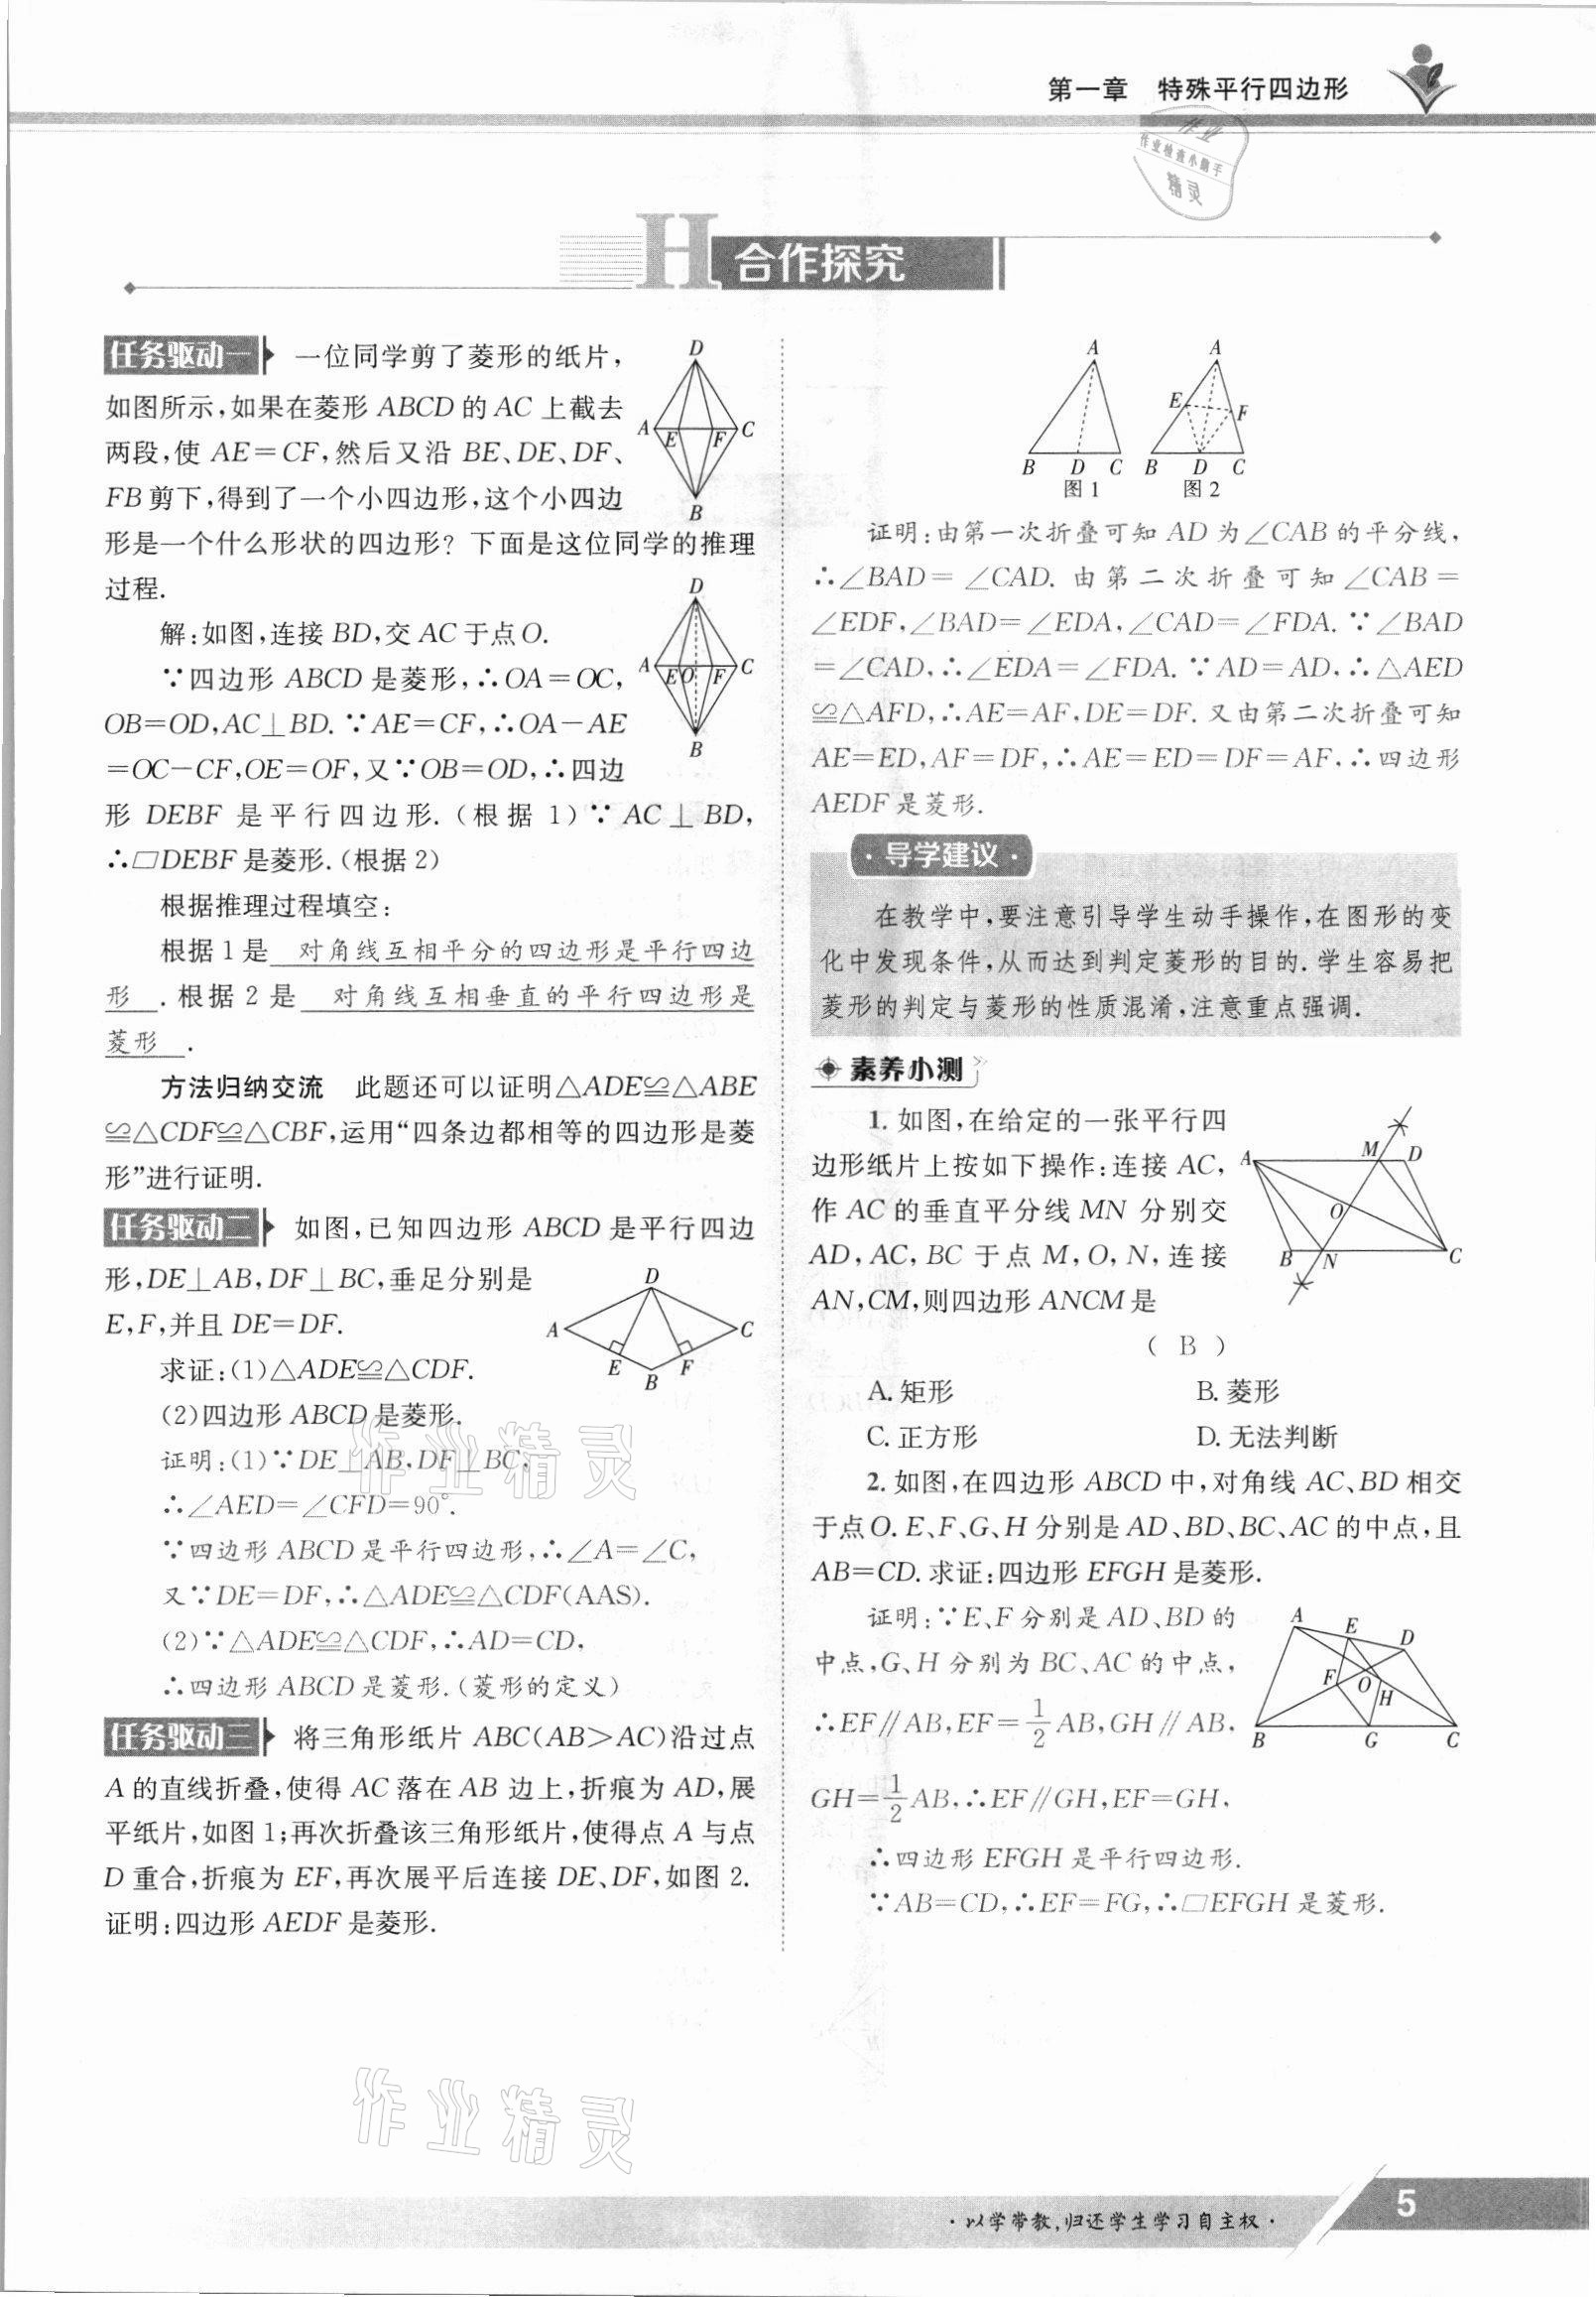 第一章　特殊平行四边形
作业
作业检查小助手
精灵
H 合作探究
任务驱动一 一位同学剪了菱形的纸片，
如图所示，如果在菱形 ABCD 的 AC 上截去
两段，使 AE＝CF，然后又沿 BE、DE、DF、
FB 剪下，得到了一个小四边形，这个小四边
形是一个什么形状的四边形？下面是这位同学的推理
过程.
D
A E F C
B
解：如图，连接 BD，交 AC 于点 O.
∵四边形 ABCD 是菱形，∴OA＝OC，
OB＝OD，AC⊥BD.∵AE＝CF，∴OA－AE
＝OC－CF，OE＝OF，又∵OB＝OD，∴四边
形 DEBF 是平行四边形.（根据 1）∵AC⊥BD，
∴▱DEBF 是菱形.（根据 2）
D
A E O F C
B
根据推理过程填空：
根据 1 是 对角线互相平分的四边形是平行四边
形 .根据 2 是 对角线互相垂直的平行四边形是
菱形 .
方法归纳交流　此题还可以证明△ADE≌△ABE
≌△CDF≌△CBF，运用“四条边都相等的四边形是菱
形”进行证明.
任务驱动二 如图，已知四边形 ABCD 是平行四边
形，DE⊥AB，DF⊥BC，垂足分别是
E，F，并且 DE＝DF.
D
A C
E B F
求证：(1)△ADE≌△CDF.
(2)四边形 ABCD 是菱形.
证明：(1)∵DE⊥AB，DF⊥BC，
∴∠AED＝∠CFD＝90°.
∵四边形 ABCD 是平行四边形，∴∠A＝∠C，
又∵DE＝DF，∴△ADE≌△CDF(AAS).
(2)∵△ADE≌△CDF，∴AD＝CD，
∴四边形 ABCD 是菱形.（菱形的定义）
任务驱动三 将三角形纸片 ABC(AB＞AC)沿过点
A 的直线折叠，使得 AC 落在 AB 边上，折痕为 AD，展
平纸片，如图 1；再次折叠该三角形纸片，使得点 A 与点
D 重合，折痕为 EF，再次展平后连接 DE、DF，如图 2.
证明：四边形 AEDF 是菱形.
A A
E F
B D C B D C
图 1 图 2
证明：由第一次折叠可知 AD 为∠CAB 的平分线，
∴∠BAD＝∠CAD. 由第二次折叠可知∠CAB＝
∠EDF，∠BAD＝∠EDA，∠CAD＝∠FDA.∵∠BAD
＝∠CAD，∴∠EDA＝∠FDA.∵AD＝AD，∴△AED
≌△AFD，∴AE＝AF，DE＝DF. 又由第二次折叠可知
AE＝ED，AF＝DF，∴AE＝ED＝DF＝AF，∴四边形
AEDF 是菱形.
·导学建议·
在教学中，要注意引导学生动手操作，在图形的变
化中发现条件，从而达到判定菱形的目的.学生容易把
菱形的判定与菱形的性质混淆，注意重点强调.
素养小测
1. 如图，在给定的一张平行四
边形纸片上按如下操作：连接 AC，
作 AC 的垂直平分线 MN 分别交
AD，AC，BC 于点 M，O，N，连接
AN，CM，则四边形 ANCM 是
（ B ）
A M D
O
B N C
A. 矩形 B. 菱形
C. 正方形 D. 无法判断
2. 如图，在四边形 ABCD 中，对角线 AC、BD 相交
于点 O. E、F、G、H 分别是 AD、BD、BC、AC 的中点，且
AB＝CD. 求证：四边形 EFGH 是菱形.
证明：∵E、F 分别是 AD、BD 的
中点，G、H 分别为 BC、AC 的中点，
∴EF∥AB，EF＝1/2 AB，GH∥AB，
GH＝1/2 AB，∴EF∥GH，EF＝GH，
∴四边形 EFGH 是平行四边形.
∵AB＝CD，∴EF＝FG，∴▱EFGH 是菱形.
A E D
F O H
B G C
作业精灵
作业精灵
·以学带教，归还学生学习自主权·
5